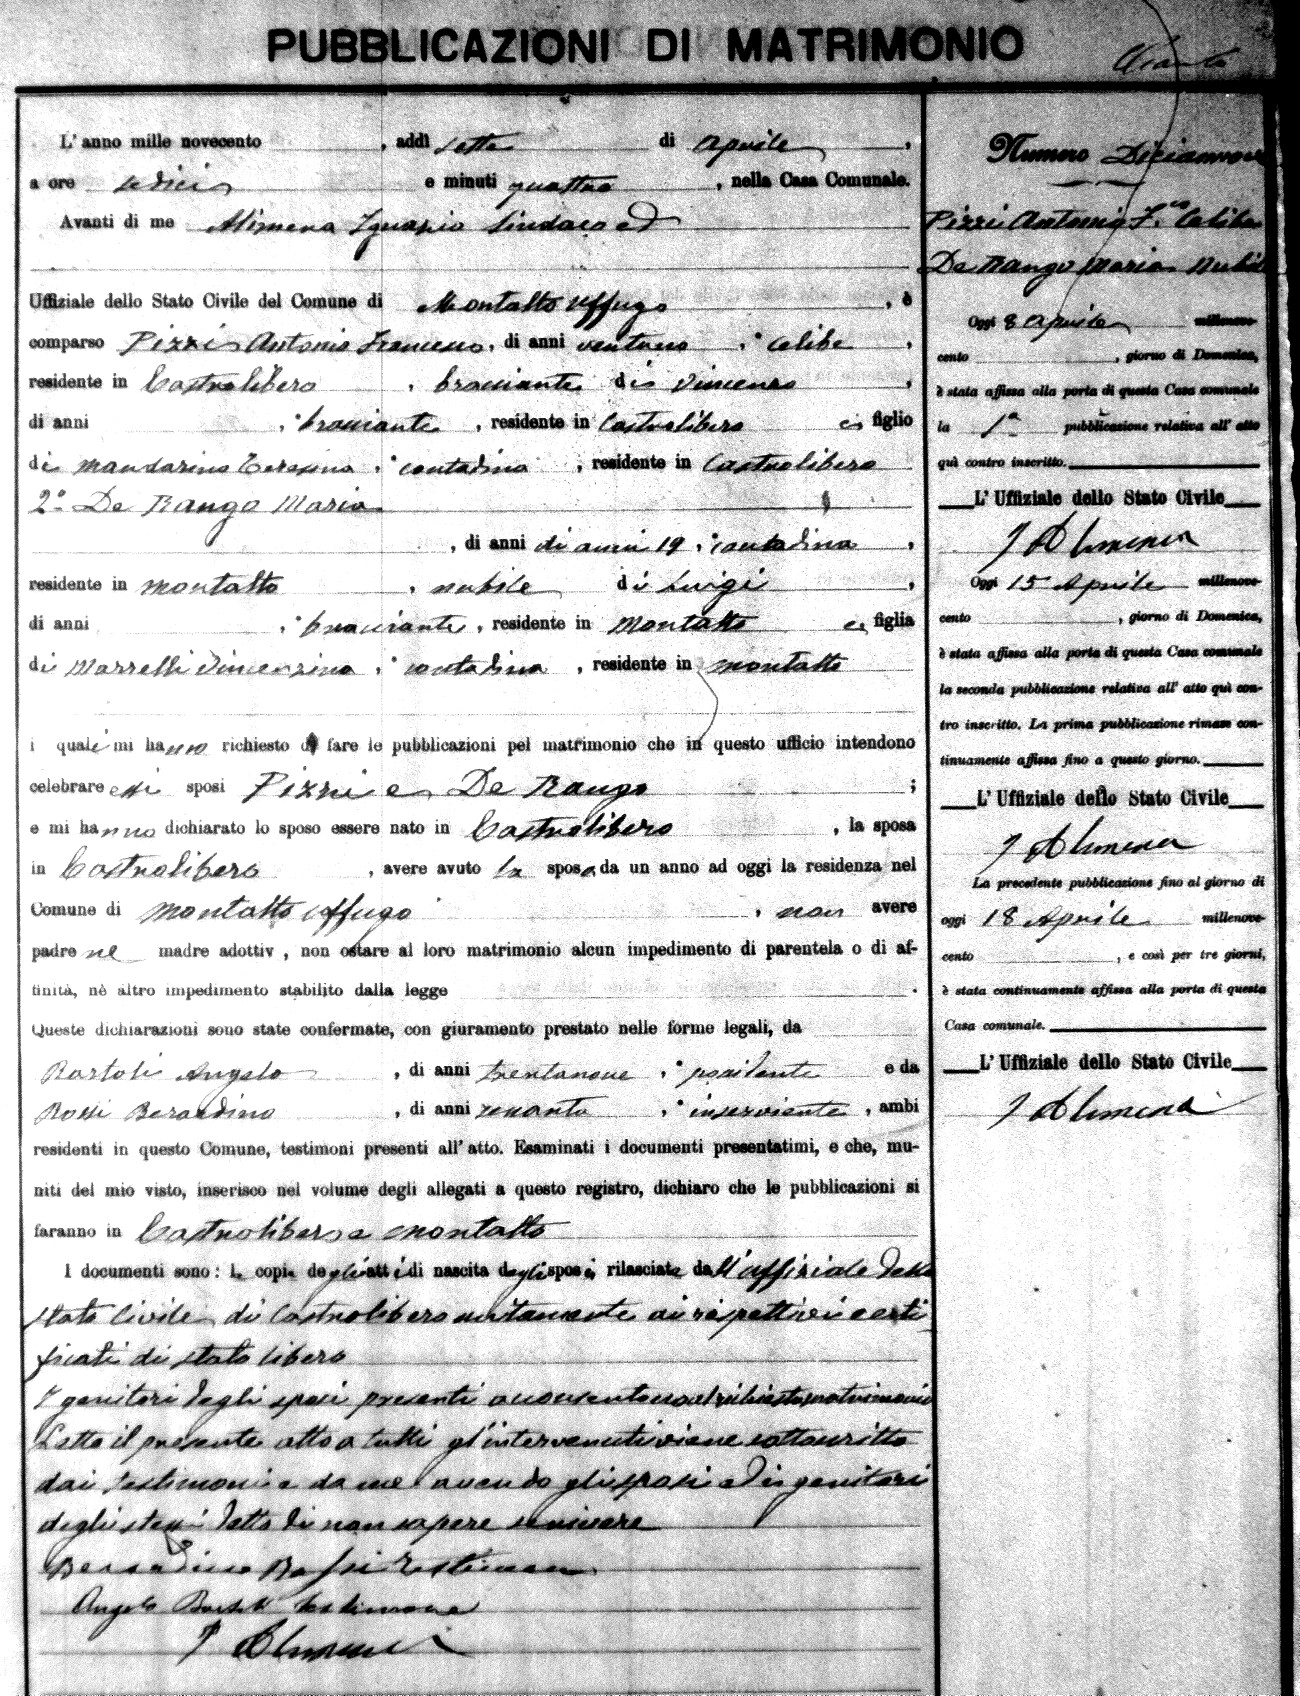 PUBBLICAZIONI DI MATRIMONIO
L' anno mille novecento , addì sette di Aprile ,
a ore sedici e minuti quattro , nella Casa Comunale.
Avanti di me Alimena Ignazio Sindaco ed
Uffiziale dello Stato Civile del Comune di Montalto Uffugo , è
comparso Pizzi Antonio Francesco, di anni ventuno , celibe ,
residente in Castrolibero , bracciante di Vincenzo ,
di anni , bracciante , residente in Castrolibero e figlio
di Mandarino Teresina , contadina , residente in Castrolibero
2° De Rango Maria
, di anni di anni 19 , contadina ,
residente in Montalto , nubile di Luigi ,
di anni , bracciante , residente in Montalto e figlia
di Marrelli Vincenzina , contadina , residente in Montalto
i quali mi hanno richiesto di fare le pubblicazioni pel matrimonio che in questo ufficio intendono
celebrare essi sposi Pizzi e De Rango ;
e mi hanno dichiarato lo sposo essere nato in Castrolibero , la sposa
in Castrolibero , avere avuto la sposa da un anno ad oggi la residenza nel
Comune di Montalto Uffugo , non avere
padre nè madre adottiv , non ostare al loro matrimonio alcun impedimento di parentela o di af-
finità, nè altro impedimento stabilito dalla legge .
Queste dichiarazioni sono state confermate, con giuramento prestato nelle forme legali, da
Bartoli Angelo , di anni trentanove , e da
Rossi Berardino , di anni , inserviente , ambi
residenti in questo Comune, testimoni presenti all' atto. Esaminati i documenti presentatimi, e che, mu-
niti del mio visto, inserisco nel volume degli allegati a questo registro, dichiaro che le pubblicazioni si
faranno in Castrolibero e Montalto
I documenti sono: le copie degli atti di nascita degli sposi rilasciate dall'uffiziale dello
Stato Civile di Castrolibero unitamente ai rispettivi certi
ficati di stato libero
I genitori degli sposi presenti acconsentono al richiesto matrimonio
Letto il presente atto a tutti gl'intervenuti viene sottoscritto
dai testimoni e da me avendo gli sposi ed i genitori
degli stessi detto di non sapere scrivere
Berardino Rossi Testimone
Angelo Bartoli testimone
I Alimena
Numero Diciannove
Pizzi Antonio F.co Celibe
De Rango Maria Nubile
Oggi 8 Aprile millenove-
cento , giorno di Domenica,
è stata affissa alla porta di questa Casa comunale
la 1a pubblicazione relativa all' atto
quì contro inscritto.
L' Uffiziale dello Stato Civile
I Alimena
Oggi 15 Aprile millenove-
cento , giorno di Domenica,
è stata affissa alla porta di questa Casa comunale
la seconda pubblicazione relativa all' atto quì con-
tro inscritto. La prima pubblicazione rimase con-
tinuamente affissa fino a questo giorno.
L' Uffiziale dello Stato Civile
I Alimena
La precedente pubblicazione fino al giorno di
oggi 18 Aprile millenove-
cento , e così per tre giorni,
è stata continuamente affissa alla porta di questa
Casa comunale.
L' Uffiziale dello Stato Civile
I Alimena